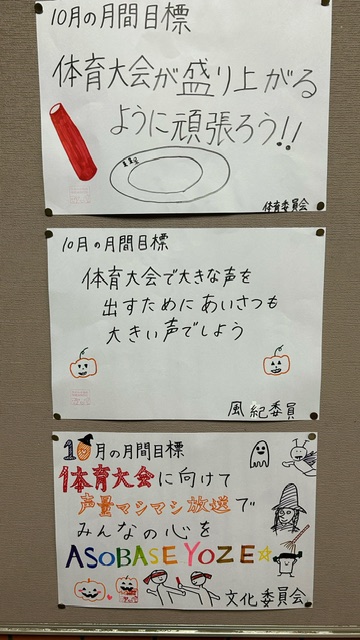 10月の月間目標
体育大会が盛り上がる
ように頑張ろう!!
体育委員会
10月の月間目標
体育大会で大きな声を
出すためにあいさつも
大きい声でしよう
風紀委員
10月の月間目標
体育大会に向けて
声量マシマシ放送で
みんなの心を
ASOBASE YOZE☆
文化委員会